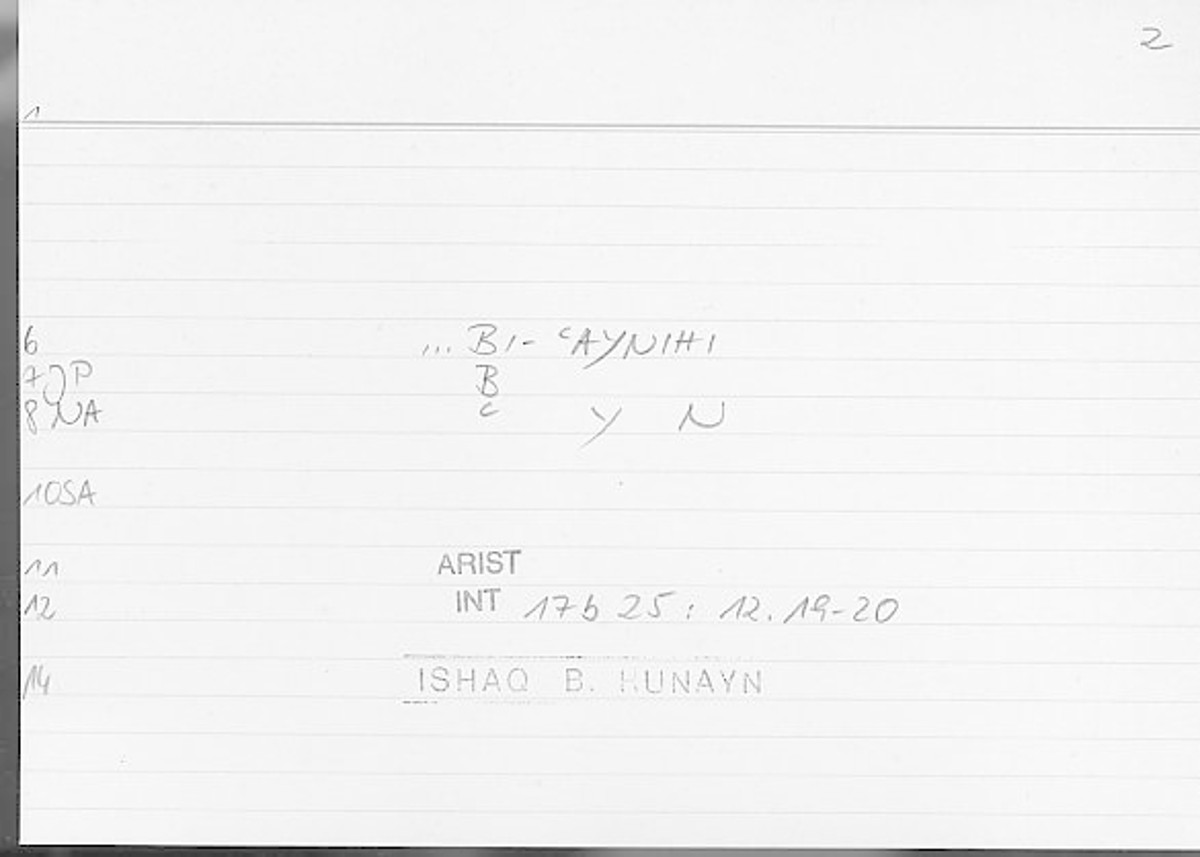 2
1
6 ... BI- ʿAYNIHI
7 JP B
8 NA ʿ Y N
10 SA
11 ARIST
12 INT 17b 25: 12.19-20
14 ISHAQ B. HUNAYN